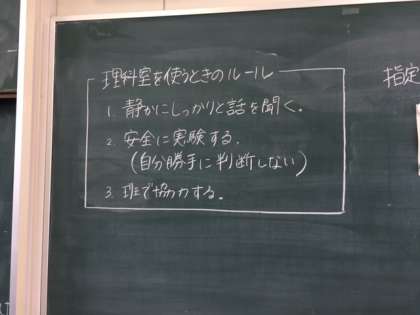 理科室を使うときのルール
1. 静かにしっかりと話を聞く。
2. 安全に実験する。
(自分勝手に判断しない)
3. 班で協力する。
指定